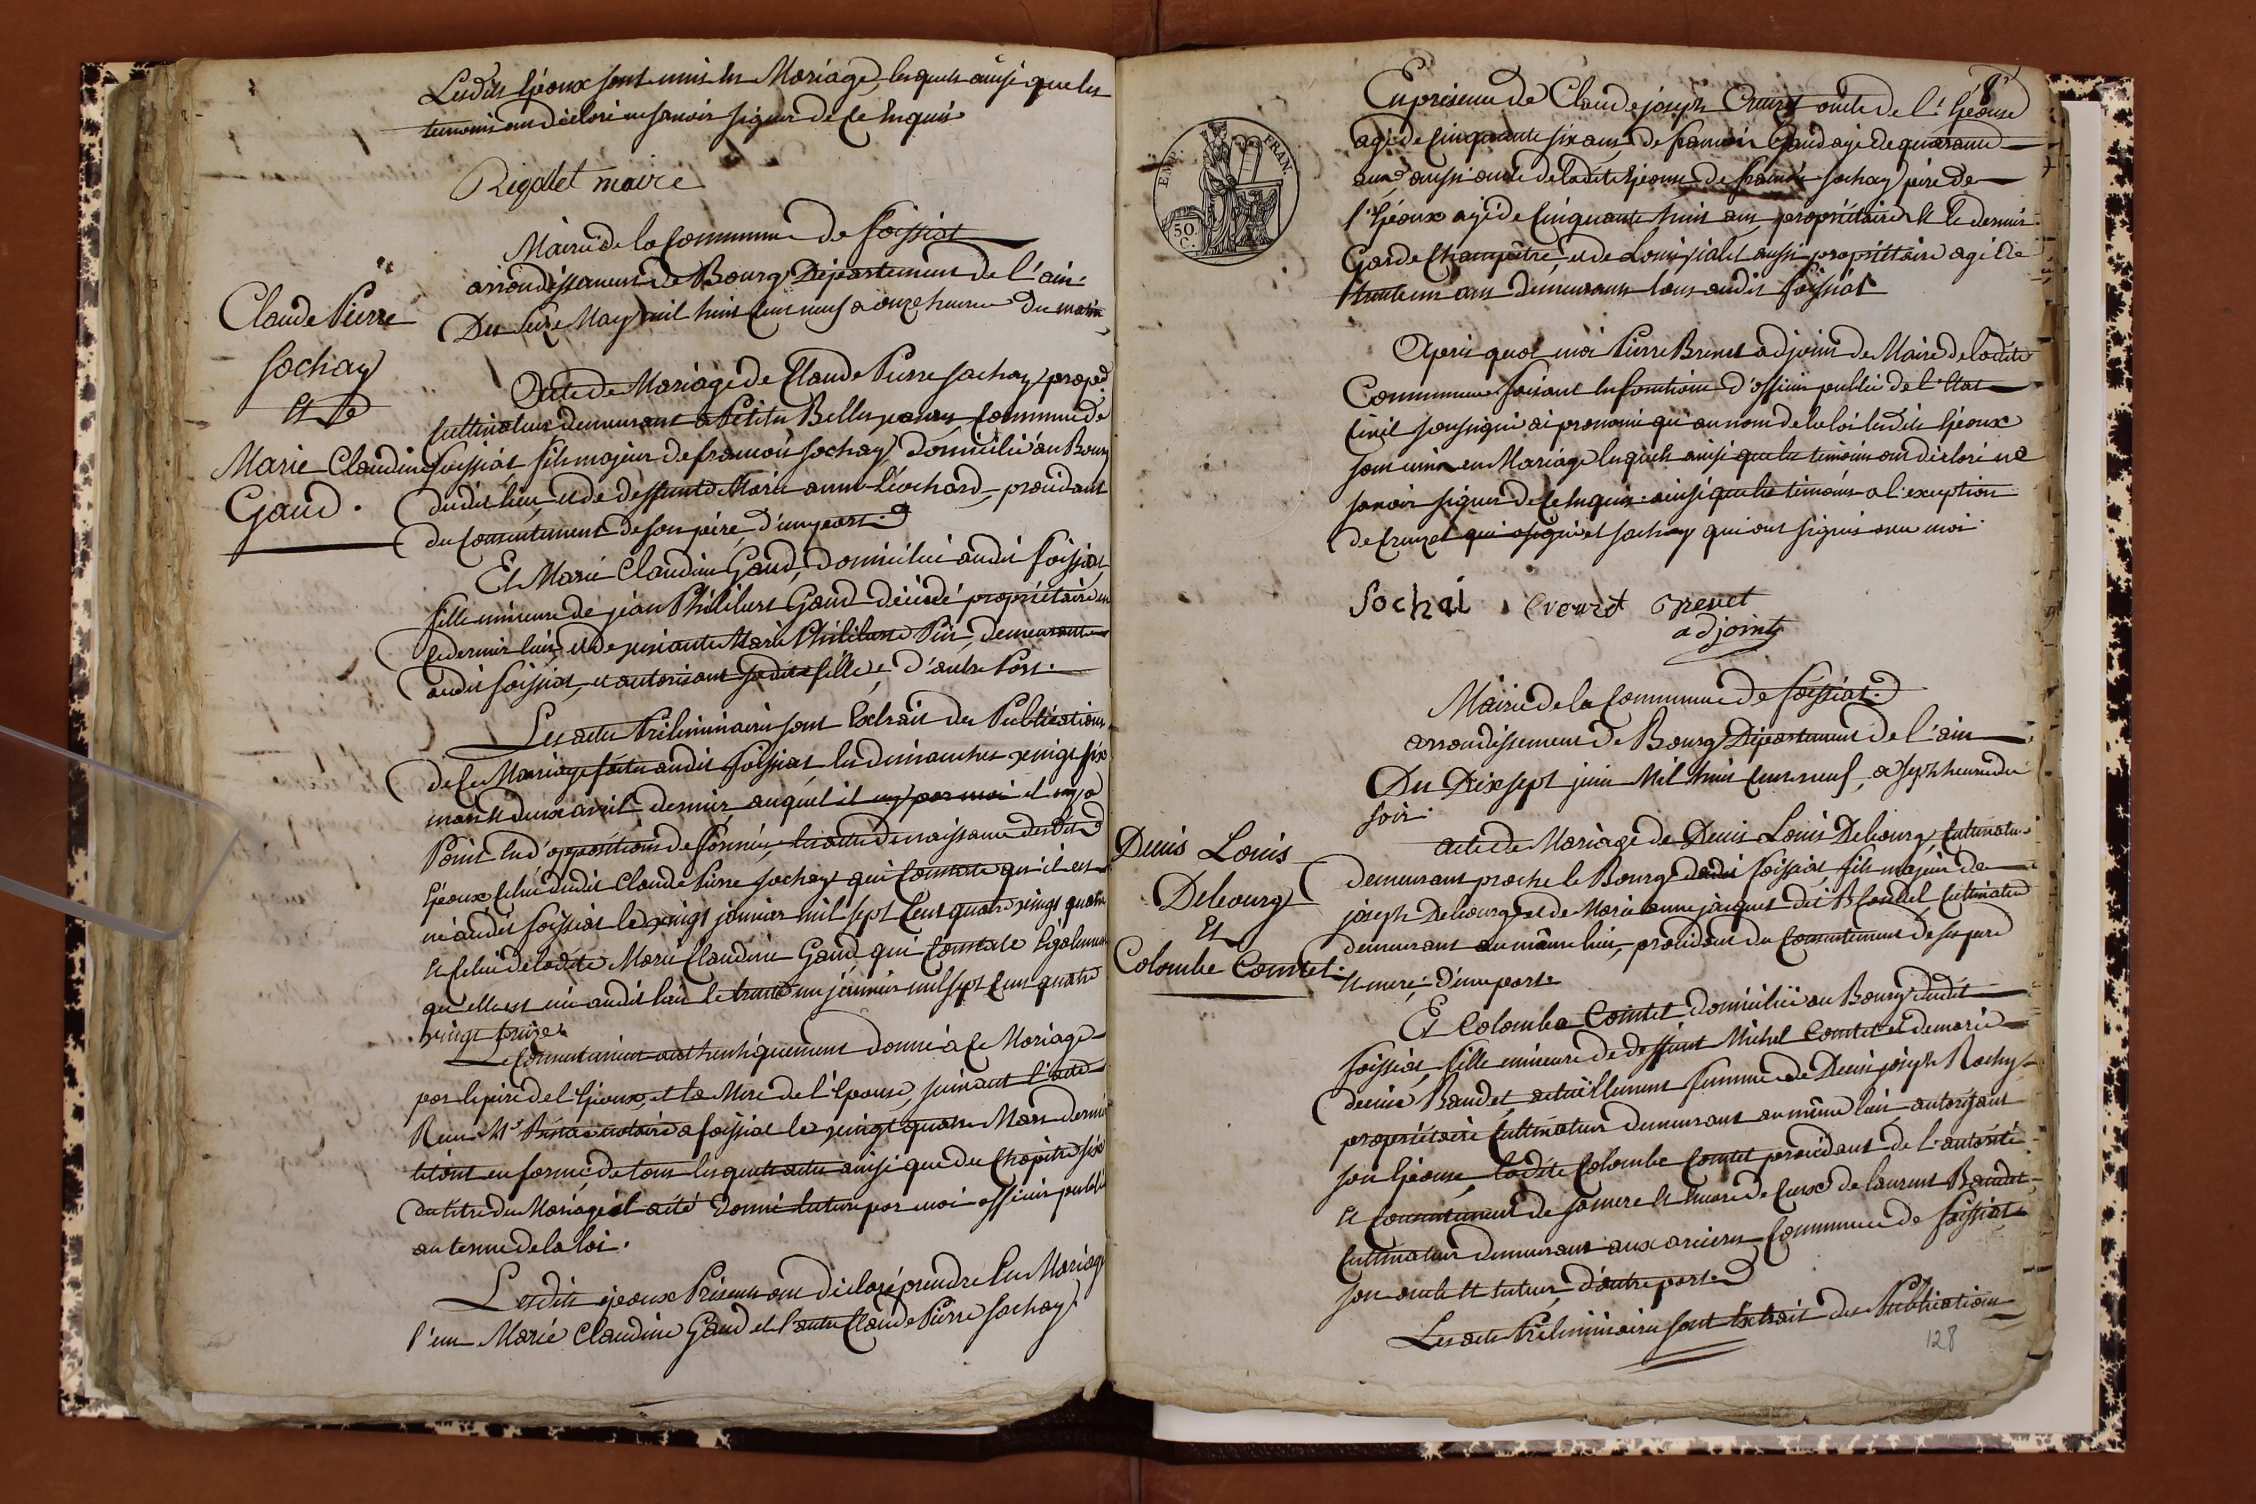 Lesdits Epoux sont unis En Mariage, lesquels ainsi que les
temoins ont déclaré ne savoir signer de ce Enquis
Rigollet maire
Mairie de la Commune de foissiat
arrondissement de Bourg Département de l'ain.
Du seize May mil huit Cent neuf a onze heures du matin
Claude Pierre
sochay
Et de
Marie Claudine
Gaud.
Acte de Mariage de Claude Pierre sochay, propre
Cultivateur demeurant a Petites Belles Commune de
foissiat fils majeur de francois sochay domicilié au Bourg
dudit lieu, et de deffunte Marie anne Léochard, procédant
du Consentement de son père d'une part.
Et Marie Claudine Gaud, domiciliée audit foissiat,
fille mineure de jean Philibert Gaud décédé propriétaire au
Ce dernier lieu, et de vivante Marie Philiberte Pin, demeurante
audit foissiat, et autorisant sadite fille, d'autre Part.
Les actes Préliminaires sont Extrait des Publications
de Ce Mariage faites audit foissiat les dimanches vingt six
mars et deux avril dernier auquel il n'y a
Point eu d'oppositions de formée, les actes de naissance desdits
Epoux Celui dudit Claude Pierre sochay qui Constate qu'il est
né audit foissiat le vingt janvier mil sept Cent quatre vingt quatre
Et Celui de ladite Marie Claudine Gaud qui Constate Egalement
qu'elle est née audit lieu le trente un janvier mil sept Cent quatre
vingt treize.
Le Consentement authentiquement donné à Ce Mariage
par le père de l'Epoux, et la Mère de l'Epouse, suivant l'acte
Reçu Me notaire a foissiat le vingt quatre Mars dernier
et en forme, de tous lesquels actes ainsi que du Chapitre six
du titre du Mariage il a été donné lecture par moi officier public
au terme de la loi.
Lesdits époux Présents ont déclaré prendre En Mariage
l'un Marie Claudine Gaud et l'autre Claude Pierre sochay
EMP. FRAN.
50 C.
En présence de Claude joseph Cruzet oncle de l'Epouse
agé de Cinquante six ans, de francois Gaud agé de quarante
ans aussi oncle de ladite Epouse, de francois sochay père de
l'Epoux agé de Cinquante huit ans, propriétaire Et le dernier
Garde Champêtre, et de Louis vialet aussi propriétaire agé de
trente un ans demeurans tous audit foissiat
Après quoi moi Pierre Brevet adjoint de Maire de ladite
Commune faisant les fonctions d'officier public de l'Etat
Civil soussigné ai prononcé qu'au nom de la loi lesdits Epoux
sont unis en Mariage lesquels ainsi que les témoins ont déclaré ne
savoir signer de Ce Enquis, ainsi que les témoins a l'exception
de Cruzet qui a signé et sochay qui ont signés avec moi.
Sochai Crouzet Brevet
adjoint
Mairie de la Commune de foissiat.
arrondissement de Bourg Département de l'ain
Du Dix sept juin Mil huit Cent neuf, a sept heures du
soir.
Denis Louis
Debourg
Et
Colombe Comtet.
acte de Mariage de Denis Louis Debourg, Cultivateur
demeurant proche le Bourg dudit foissiat, fils majeur de
joseph Debourg et de Marie anne jacquet dit Blondel Cultivateur
demeurant au même lieu, procédant du Consentement de ses père
Et mère, d'une part.
Et Colombe Comtet domiciliée au Bourg dudit
foissiat, fille mineure de deffunt Michel Comtet et de marie
denise Baudet actuellement femme de Denis joseph Rochy
propriétaire Cultivateur demeurant au même lieu autorisant
son Epouse, ladite Colombe Comtet procédant de l'autorité
Et Consentement de sa mère Et encore de Ceux de laurent Baudet
Cultivateur demeurant aux arciers Commune de foissiat
son oncle Et tuteur, d'autre part.
Les actes Préliminaires sont Extrait des Publications
128